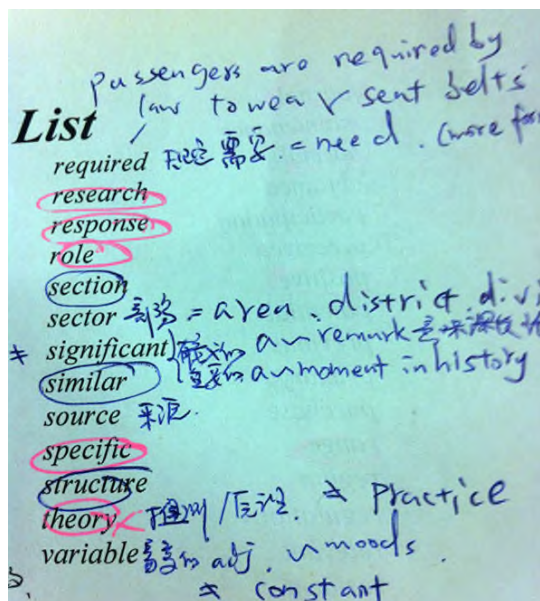 passengers are required by
law to wear sent belts
List
required 规定 需要 = need. (more for
research
response
role
section
sector = area. district. divi
significant a~ remark
重要的 a~ moment in history
similar
source 来源.
specific
structure
theory 推测 / ≠ practice
variable 易变的 adj. ~ moods.
≠ constant